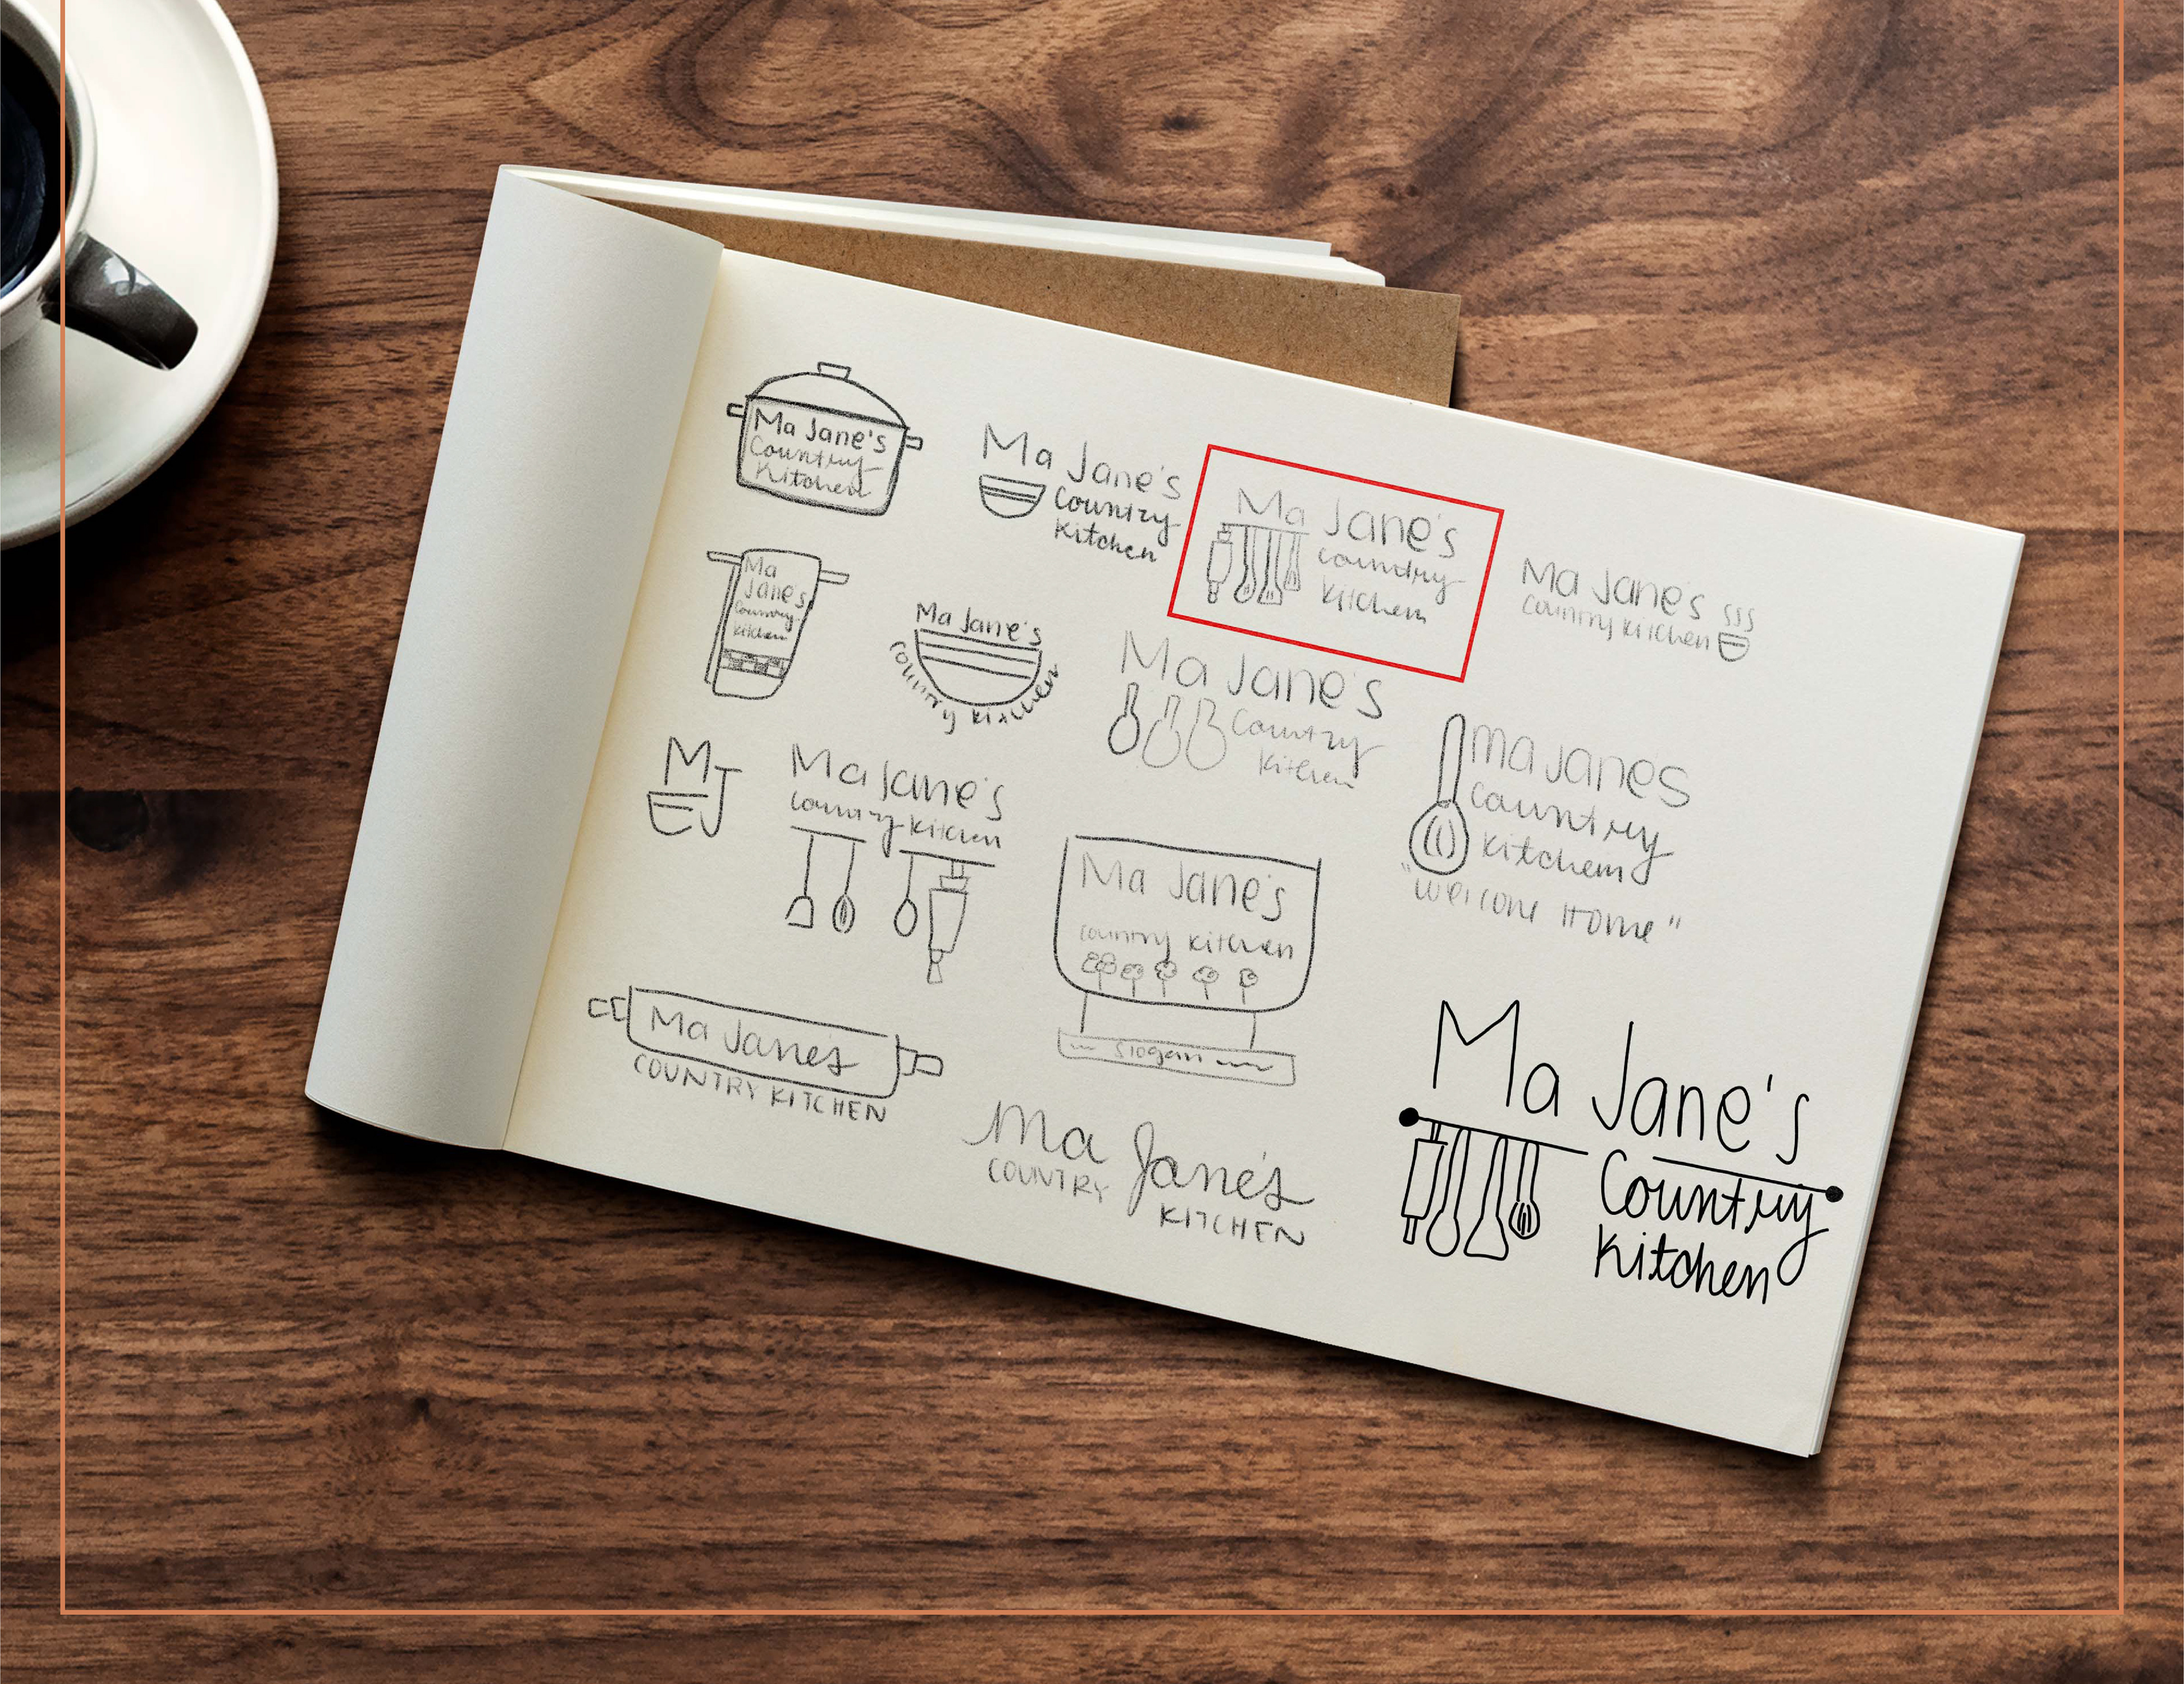 Ma Jane's
Country
Kitchen
Ma Jane's
Country
Kitchen
Ma Jane's
Country
Kitchen
Ma Jane's
Country Kitchen
Ma
Jane's
Country
Kitchen
Ma Jane's
Country Kitchen
Ma Jane's
Country
Kitchen
ma Janes
Country
Kitchen
"Welcome Home"
MJ
Ma Jane's
Country Kitchen
Ma Jane's
Country Kitchen
Slogan
Ma Janes
COUNTRY KITCHEN
Ma Jane's
COUNTRY
KITCHEN
Ma Jane's
Country
Kitchen